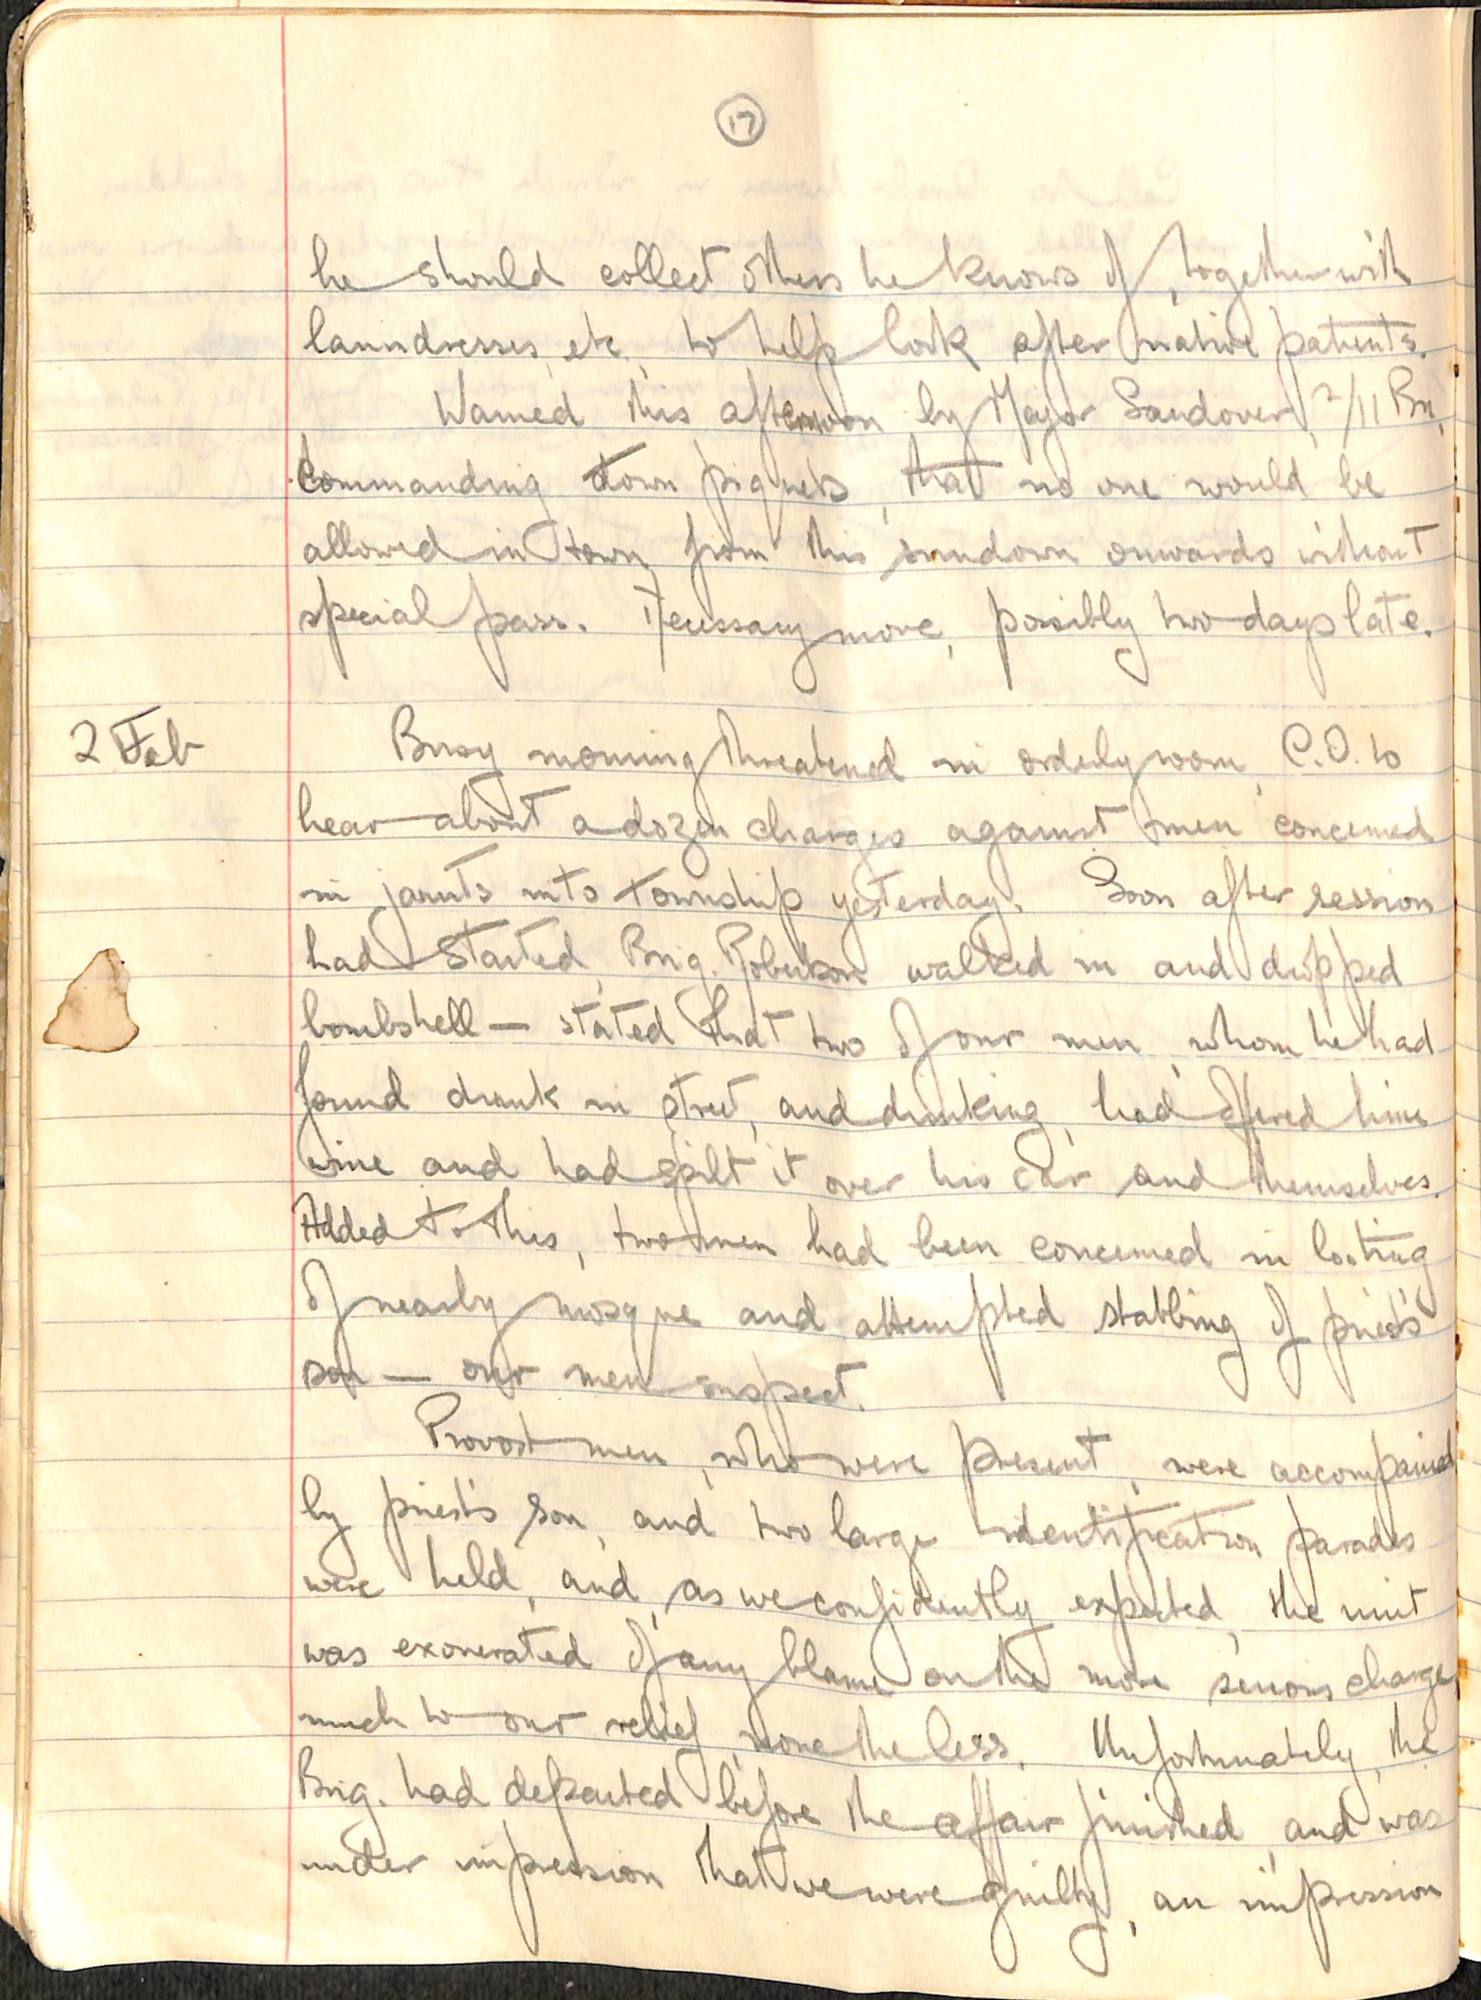 17
he should collect others he knows of, together with
laundresses, etc, to help look after native patients.
Warned this afternoon by Major Sandover, 2/11 Bn,
commanding town piquets, that no one would be
allowed in town from this sundown onwards without
special pass. Necessary move, possibly two days late.
2 Feb
Busy morning threatened in orderly room, C.O. to
hear about a dozen charges against men concerned
in jaunts into township yesterday. Soon after session
had started, Brig. Robertson walked in and dropped
bombshell — stated that two of our men, whom he had
found drunk in street, and drinking, had offered him
wine and had spilt it over his car and themselves.
Added to this, two men had been concerned in looting
of nearby mosque and attempted stabbing of priest's
son — our men suspect.
Provost men, who were present, were accompanied
by priest's son, and two large identification parades
were held, and, as we confidently expected, the unit
was exonerated of any blame on the more serious charge
much to our relief, none the less. Unfortunately, the
Brig. had departed before the affair finished, and was
under impression that we were guilty, an impression